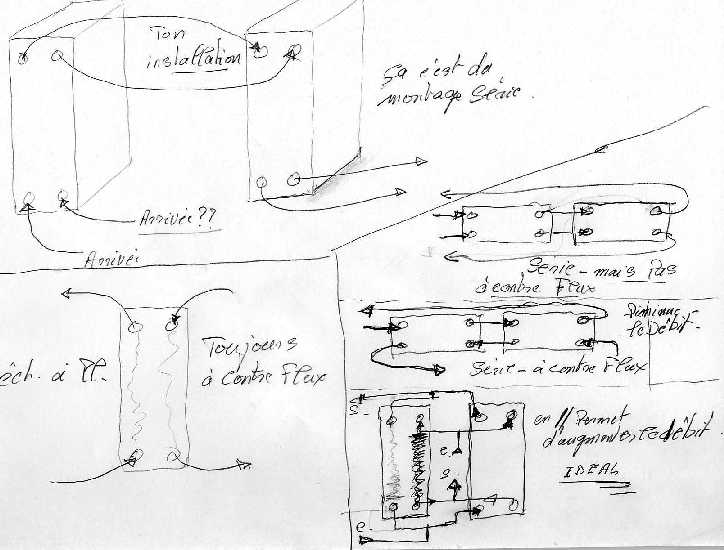 Ton
installation
ça c'est du
montage Série.
Arrivée??
Arrivée
Série - mais pas
à contre Flux
Diminue
le Débit.
Série - à contre Flux
Toujours
à contre Flux
éch. à Pl.
en // Permet
d'augmenter le débit.
IDEAL
s.
e.
s
e.